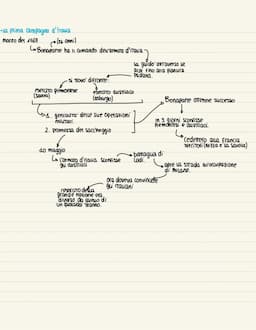 -La prima campagna d'Italia
marzo del 1796 → (26 anni)
↳ Bonaparte ha il comando dell'armata d'Italia
la guidò attraverso le
alpi fino alla pianura
padana.
si trovò di fronte:
esercito piemontese
(savoia)
esercito austriaco
(asburgo)
Bonaparte ottenne successo
1. genialità delle sue operazioni
militari
2. promessa del saccheggio
in 3 giorni sconfisse
piemontesi e austriaci.
↳ cedettero alla Francia
territori (Nizza e la Savoia)
10 maggio
battaglia di
Lodi.
↳ l'armata d'Italia sconfisse
gli austriaci
aprì la strada all'occupazione
di Milano.
ora doveva convincere
gli italiani
grande nazione era
diverso da quello di
un qualsiasi tiranno.